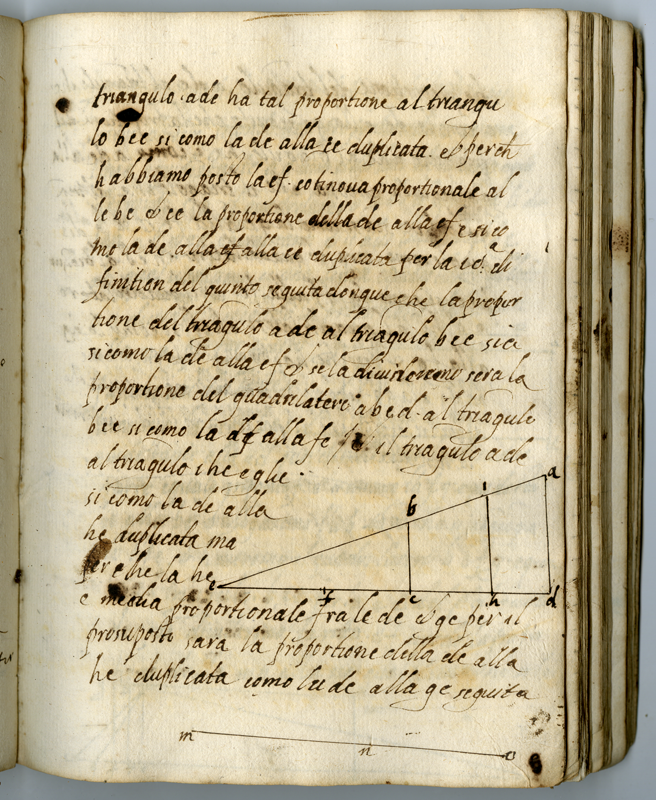 triangulo ade ha tal proportione al triangu
lo bec si como la de alla ce duplicata & perch
habbiamo posto la ef cotinova proportionale al
le be & ce la proportione della de alla ef e sico
mo la de alla ef alla ce duplicata per la di
finition del quinto seguita donque che la propor
tione del triagulo ade al triagulo bec sia
si como la de alla ef & se la sera la
proportione del quadrilatero abcd al triagulo
bec si como la df alla fe il triagulo ade
al triagulo ihe e glie
si como la de alla
he duplicata ma
perche la he
e media proportionale fra le de & ge per il
prosuposto sara la proportione della de alla
he duplicata como la de alla ge seguita
a
i
b
e
f
c
h
d
m
n
o